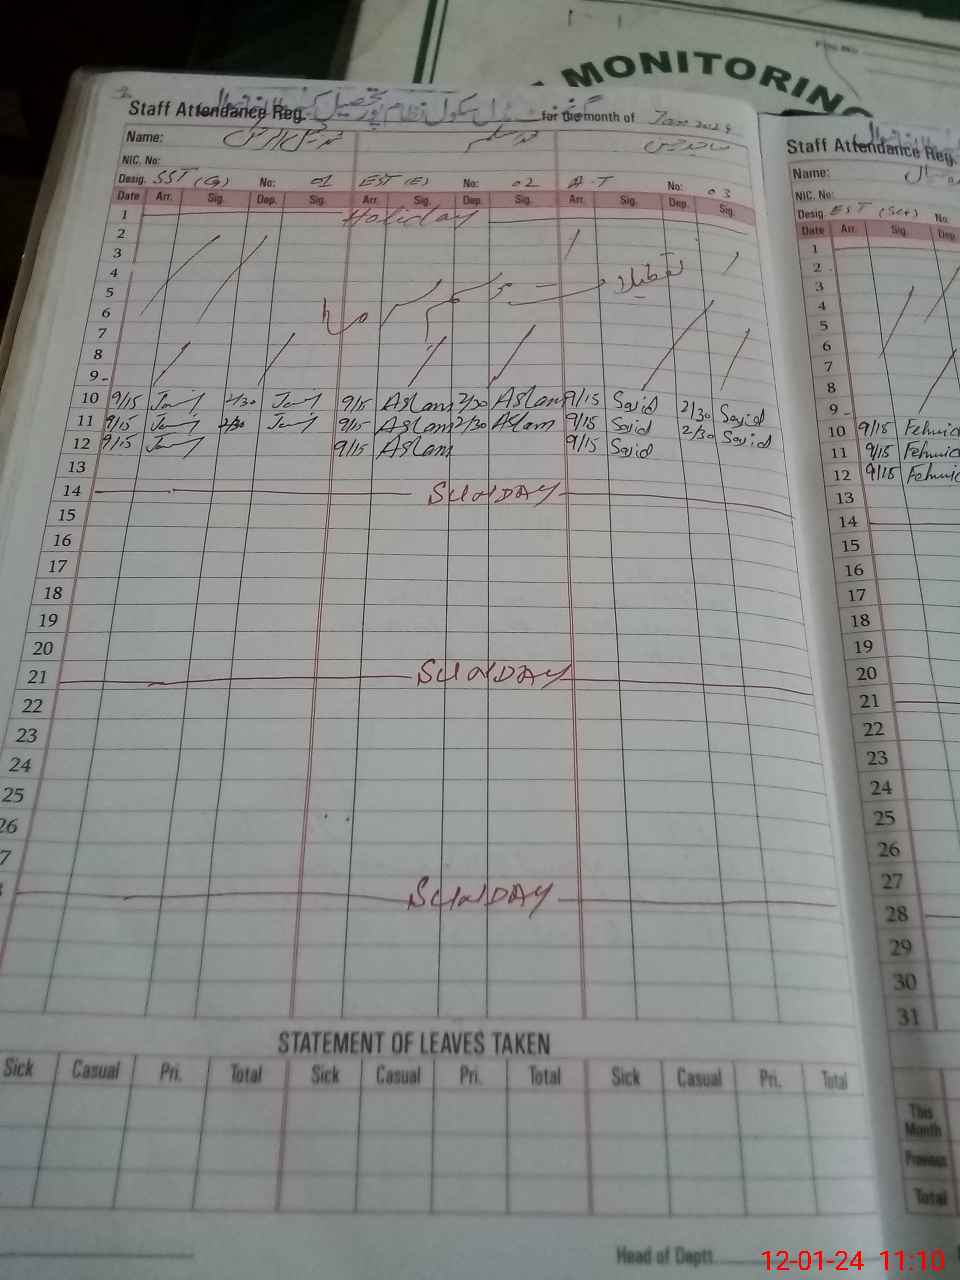 MONITORING
Staff Attendance Reg. for the month of Jan 2024
Name:
NIC. No:
Desig. SST (G) No: 01 EST (E) No: 02 A.T No: 03
Date Arr. Sig. Dep. Sig. Arr. Sig. Dep. Sig. Arr. Sig. Dep. Sig.
1 Holiday
2
3
4
5 تعطیلات موسم سرما
6
7
8
9
10 9/15 2/30 9/15 Aslam 2/30 Aslam 9/15 Sajid 2/30 Sajid
11 9/15 2/30 9/15 Aslam 2/30 Aslam 9/15 Sajid 2/30 Sajid
12 9/15 9/15 Aslam 9/15 Sajid
13
14 SUNDAY
15
16
17
18
19
20
21 SUNDAY
22
23
24
25
26
7
SUNDAY
STATEMENT OF LEAVES TAKEN
Sick Casual Pri. Total Sick Casual Pri. Total Sick Casual Pri. Total
Head of Deptt.
Staff Attendance Reg.
Name:
NIC. No:
Desig. EST (Sci) No.
Date Arr. Sig. Dep.
1
2
3
4
5
6
7
8
9
10 9/15
11 9/15
12 9/15
13
14
15
16
17
18
19
20
21
22
23
24
25
26
27
28
29
30
31
This Month
Previous
Total
12-01-24 11:10